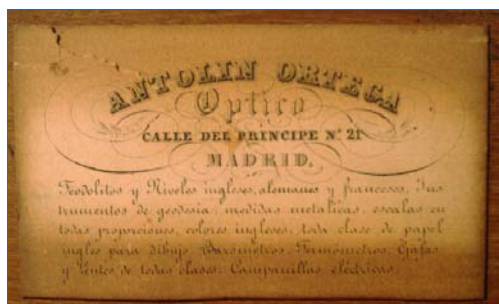 ANTOLIN ORTEGA
Optico
CALLE DEL PRINCIPE Nº 21
MADRID.
Teodolitos y Niveles ingleses, alemanes y franceses, Ins
trumentos de geodesia, medidas metalicas, escalas en
todas proporciones, colores ingleses, toda clase de papel
ingles para dibujo Barometros Termometros, Gafas
y Lentes de todas clases. Campanillas eléctricas.